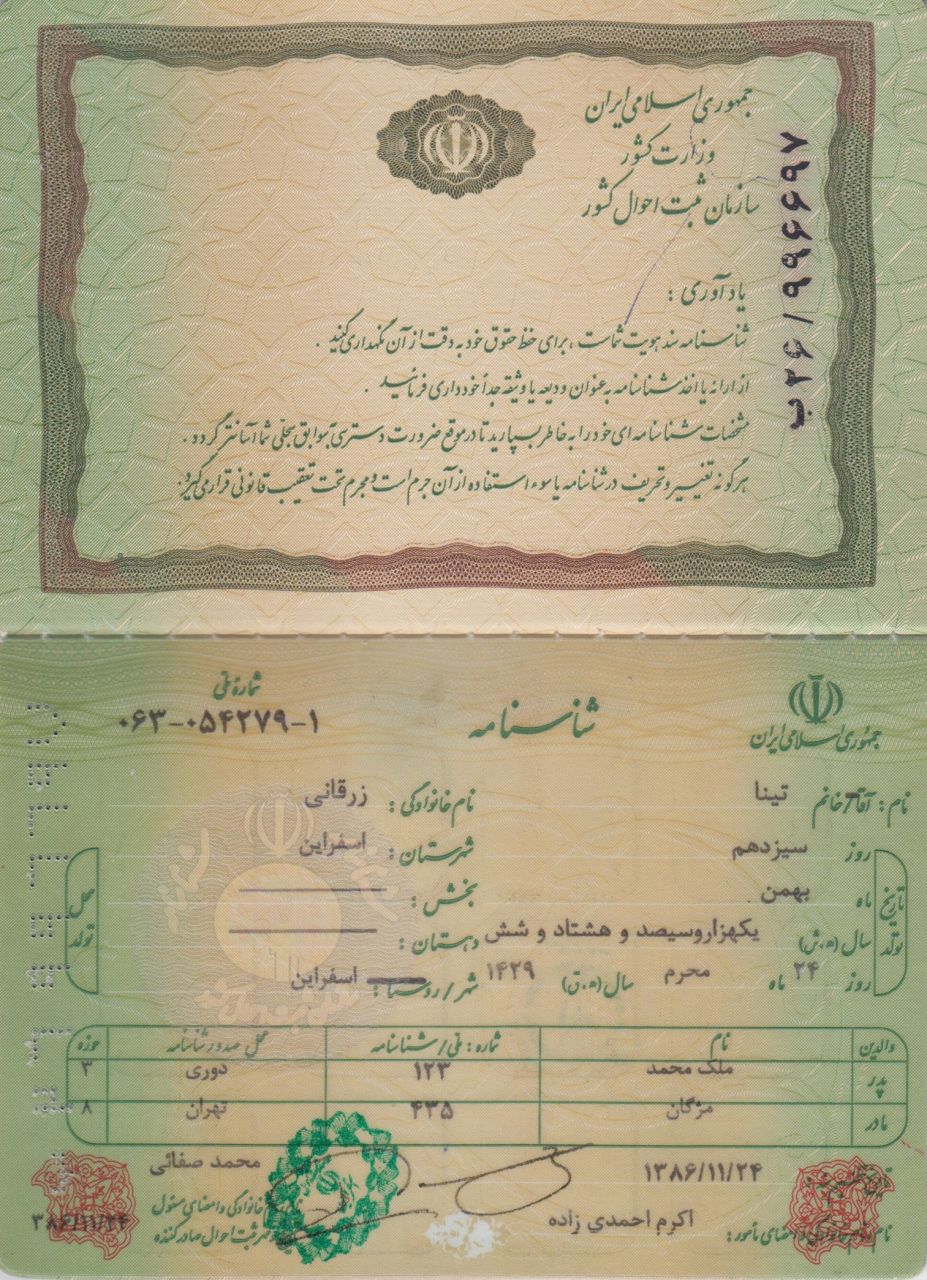 جمهوری اسلامی ایران
وزارت کشور
سازمان ثبت احوال کشور
ب۲۶/۹۹۶۶۹۷
یادآوری :
شناسنامه سند هویت شماست ، برای حفظ حقوق خود به دقت از آن نگهداری کنید .
از ارائه یا اخذ شناسنامه به عنوان ودیعه یا وثیقه جداً خودداری فرمائید .
مشخصات شناسنامه ای خود را به خاطر بسپارید تا در موقع ضرورت دسترسی بسوابق سجلی شما آسانتر گردد .
هرگونه تغییر و تحریف در شناسنامه یا سوء استفاده از آن جرم است و مجرم تحت تعقیب قانونی قرار می گیرد .
جمهوری اسلامی ایران
شناسنامه
شماره ملی
۰۶۳-۰۵۴۲۷۹-۱
نام : آقا/خانم تینا نام خانوادگی : زرقانی
تاریخ تولد
روز سیزدهم
ماه بهمن
سال (ه.ش) یکهزاروسیصد و هشتاد و شش
روز ۲۴ ماه محرم سال (ه.ق) ۱۴۲۹
محل تولد
شهرستان : اسفراین
بخش :
دهستان :
شهر/روستا : اسفراین
والدین نام شماره : ملی/شناسنامه محل صدور شناسنامه حوزه
پدر ملک محمد ۱۲۳ دوری ۳
مادر مژگان ۴۳۵ تهران ۸
۱۳۸۶/۱۱/۲۴
محمد صفائی
نام خانوادگی و امضای مسئول
اکرم احمدی زاده
و مهر ثبت احوال صادر کننده
۱۳۸۶/۱۱/۲۴